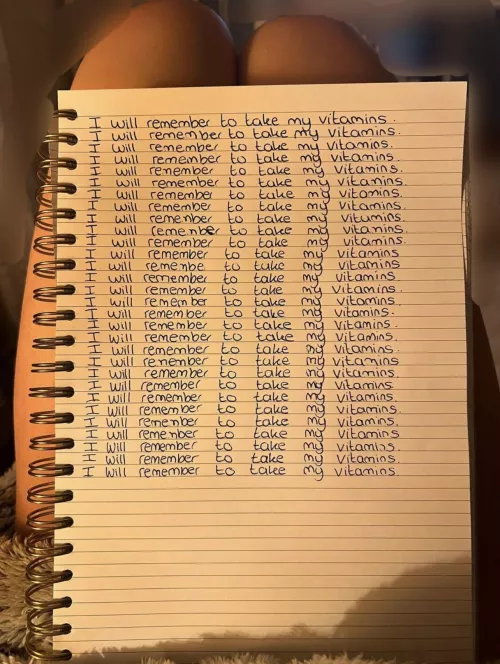 I will remember to take my vitamins.
I will remember to take my vitamins.
I will remember to take my vitamins.
I will remember to take my vitamins.
I will remember to take my vitamins.
I will remember to take my vitamins.
I will remember to take my vitamins.
I will remember to take my vitamins.
I will remember to take my vitamins.
I will remember to take my vitamins.
I will remember to take my vitamins.
I will remember to take my vitamins
I will remember to take my vitamins
I will remember to take my vitamins
I will remember to take my vitamins.
I will remember to take my vitamins.
I will remember to take my vitamins.
I will remember to take my vitamins.
I will remember to take my vitamins.
I will remember to take my vitamins.
I will remember to take my vitamins
I will remember to take my vitamins.
I will remember to take my vitamins
I will remember to take my vitamins
I will remember to take my vitamins.
I will remember to take my vitamins.
I will remember to take my vitamins.
I will remember to take my vitamins.
I will remember to take my vitamins.
I will remember to take my vitamins.